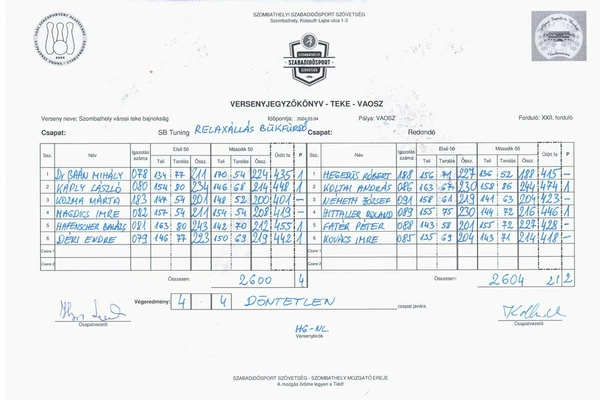 SZOMBATHELYI SZABADIDŐSPORT SZÖVETSÉG
Szombathely, Kossuth Lajos utca 1-3
SZOMBATHELYI
SZABADIDŐSPORT
SZÖVETSÉG
VERSENYJEGYZŐKÖNYV - TEKE - VAOSZ
Verseny neve: Szombathely városi teke bajnokság Időpontja: 2024.03.04 Pálya: VAOSZ Forduló: XXII. forduló
Csapat: SB Tuning RELAXÁLLÁS BÜKFÜRDŐ Csapat: Redondó
Ssz. Név Igazolás száma Első 50 Második 50 Ütött fa P Ssz. Név Igazolás száma Első 50 Második 50 Ütött fa P
Teli Tarolás Össz. Teli Tarolás Össz. Teli Tarolás Össz. Teli Tarolás Össz.
1 Dr GAÁN MIHÁLY 078 134 77 211 170 54 224 435 1 1 HEGEDÜS RÓBERT 188 156 71 227 136 52 188 415 –
2 KÁPLY LÁSZLÓ 080 154 80 234 146 68 214 448 1 2 KOLTAI ANDRÁS 086 163 67 230 158 86 244 474 1
3 KOZMA MÁRTA 183 147 54 201 148 52 200 401 – 3 NÉMETH JÓZSEF 091 158 61 219 141 63 204 423 –
4 MAGDICS IMRE 082 157 54 211 154 54 208 419 – 4 HITTALLER ROLAND 089 155 75 230 144 72 216 446 1
5 HAFENSCHER BALÁZS 081 163 80 243 142 70 212 455 1 5 FATÉR PÉTER 088 143 58 201 155 72 227 428 –
6 DÉRI ENDRE 079 146 77 223 150 69 219 442 1 6 KOVÁCS IMRE 085 135 69 204 143 71 214 418 –
Csere 1 Csere 1
Csere 2 Csere 2
Összesen: 2600 4 Összesen: 2604 2 2
Végeredmény: 4 . 4 DÖNTETLEN csapat javára
Csapatvezető Csapatvezető
HG-NL
Versenybírók
SZABADIDŐSPORT SZÖVETSÉG - SZOMBATHELY MOZGATÓ EREJE
A mozgás öröme legyen a Tiéd!